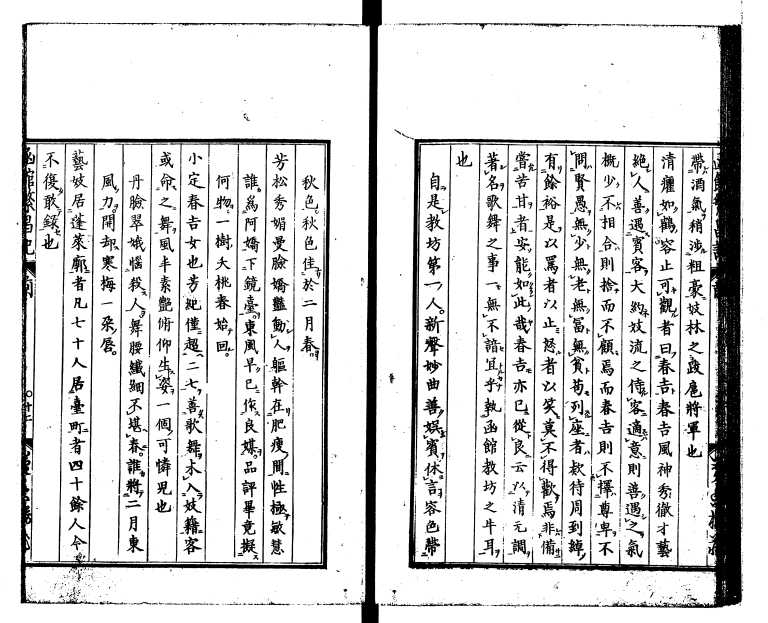 帶酒氣稍涉粗豪妓林之跋扈將軍也
清癯如鶴容止可觀者曰春吉春吉風神秀徹才藝
絕人善遇賓客大約妓流之侍客適意則善遇之氣
概少不相合則捨而不顧焉而春吉則不擇尊卑不
問賢愚無少無老無冨無貧苟列座者欵待周到綽
有餘裕是以罵者以止怒者以笑莫不得歡焉非備
嘗苦甘者安能如此哉春吉亦已從良云以清元調
著名歌舞之事一無不諳宜乎執函館教坊之牛耳
也
自是教坊第一人新聲妙曲善娯賓休言容色帶
秋色秋色佳於二月春
芳松秀媚曼臉嬌豔動人軀幹在肥瘦間性極敏慧
誰爲阿嬌下鏡臺東風早已作良媒品評畢竟擬
何物一樹夭桃春始回
小定春吉女也芳紀僅超二七善歌舞未入妓籍客
或命之舞風丰素艷俯仰生姿一個可憐兒也
丹臉翠娥惱殺人舞腰纖細不堪春誰將二月東
風力開却寒梅一朶唇
藝妓居蓬萊廓者凡七十人居臺町者四十餘人今
不復敢錄也
函館繁昌記